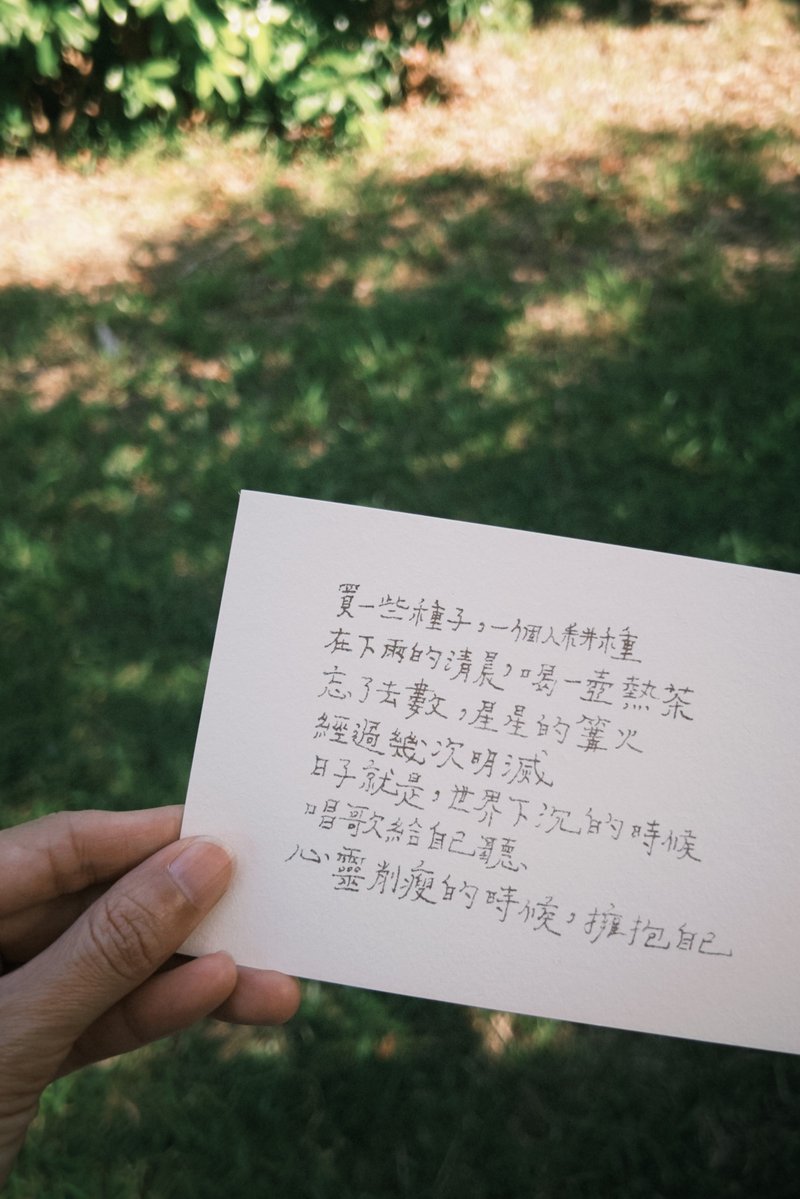 買一些種子，一個人耕種
在下雨的清晨，喝一壺熱茶
忘了去數，星星的篝火
經過幾次明滅
日子就是，世界下沉的時候
唱歌給自己聽
心靈削瘦的時候，擁抱自己